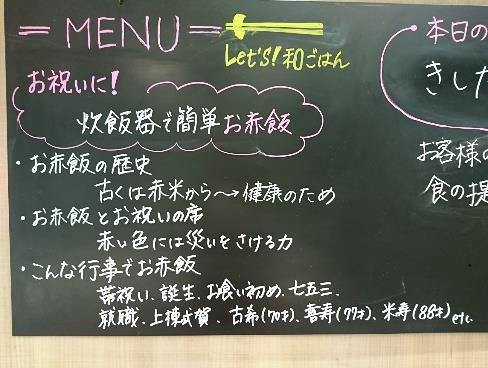 = MENU =
Let's! 和ごはん
お祝いに!
炊飯器で簡単お赤飯
・お赤飯の歴史
古くは赤米から〜→健康のため
・お赤飯とお祝いの席
赤い色には災いをさける力
・こんな行事でお赤飯
帯祝い、誕生、お食い初め、七五三、
就職、上棟式賀、古希(70才)、喜寿(77才)、米寿(88才)etc.
本日の
きした
お客様の
食の提